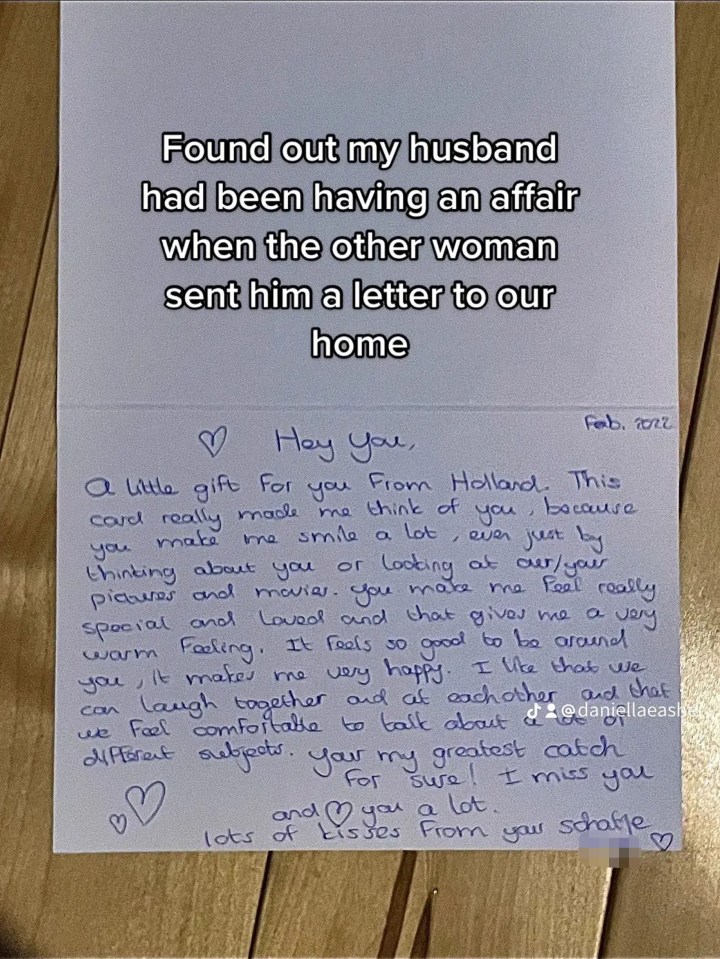 Found out my husband
had been having an affair
when the other woman
sent him a letter to our
home
Feb. 2022
Hey you,
A little gift for you from Holland. This
card really made me think of you, because
you make me smile a lot, even just by
thinking about you or looking at our/your
pictures and movies. you make me feel really
special and loved and that gives me a very
warm feeling. It feels so good to be around
you, it makes me very happy. I like that we
can laugh together and at eachother and that
we feel comfortable to talk about a lot of
@daniellaeashe
different subjects. your my greatest catch
for sure! I miss you
and ♡ you a lot.
lots of kisses from your schatje